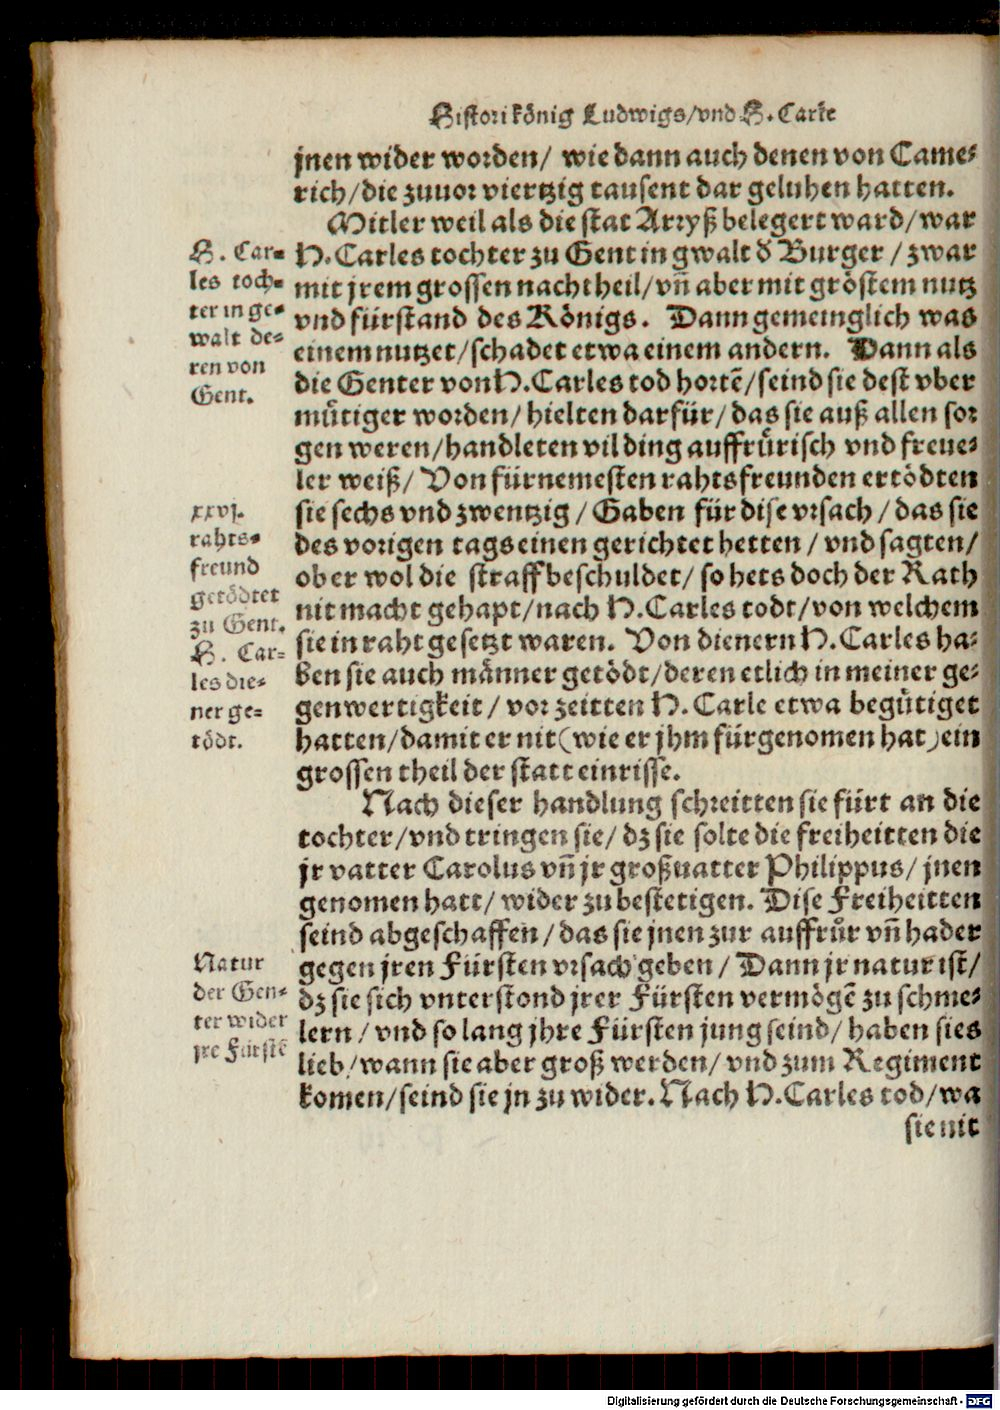 Histori könig Ludwigs/vnd H. Carle
jnen wider worden/ wie dann auch denen von Came-
rich/die zuuor viertzig tausent dar geluhen hatten.
Mitler weil als die stat Arryß belegert ward/war
H. Carles tochter zu Gent in gwalt d̕ Burger / zwar
mit jrem grossen nachtheil/vn̄ aber mit gröstem nutz
vnd fürstand des Königs. Dann gemeinglich was
einem nutzet/schadet etwa einem andern. Dann als
die Genter von H. Carles tod hortē/seind sie dest vber
muͤtiger worden/ hielten darfür/ das sie auß allen sor
gen weren/handleten vil ding auffruͤrisch vnd freue-
ler weiß/ Von fürnemesten rahtsfreunden ertödten
sie sechs vnd zwentzig / Gaben für dise vrsach / das sie
des vorigen tags einen gerichtet hetten / vnd sagten/
ob er wol die straff beschuldet/ so hets doch der Rath
nit macht gehapt/nach H. Carles todt/von welchem
sie in raht gesetzt waren. Von dienern H. Carles ha-
ben sie auch männer getödt/deren etlich in meiner ge-
genwertigkeit / vor zeitten H. Carle etwa beguͤtiget
hatten/damit er nit (wie er jhm fürgenomen hat) ein
grossen theil der statt einrisse.
Nach dieser handlung schreitten sie fürt an die
tochter/vnd tringen sie/ dz sie solte die freiheitten die
jr vatter Carolus vn̄ jr großuatter Philippus/ jnen
genomen hatt/ wider zu bestetigen. Dise Freiheitten
seind abgeschaffen/das sie jnen zur auffruͤr vn̄ hader
gegen jren Fürsten vrsach geben / Dann jr natur ist/
dz sie sich vnterstond jrer Fürsten vermögē zu schme-
lern / vnd so lang jhre Fürsten jung seind/ haben sies
lieb/wann sie aber groß werden/ vnd zum Regiment
komen/seind sie jn zu wider. Nach H. Carles tod/wa
sie nit
H. Car-
les toch-
ter in ge-
walt de-
ren von
Gent.
xxvj.
rahts-
freund
getödtet
zu Gent.
H. Car-
les die-
ner ge-
tödt.
Natur
der Gen-
ter wider
jre Fürstē
Digitalisierung gefördert durch die Deutsche Forschungsgemeinschaft - DFG